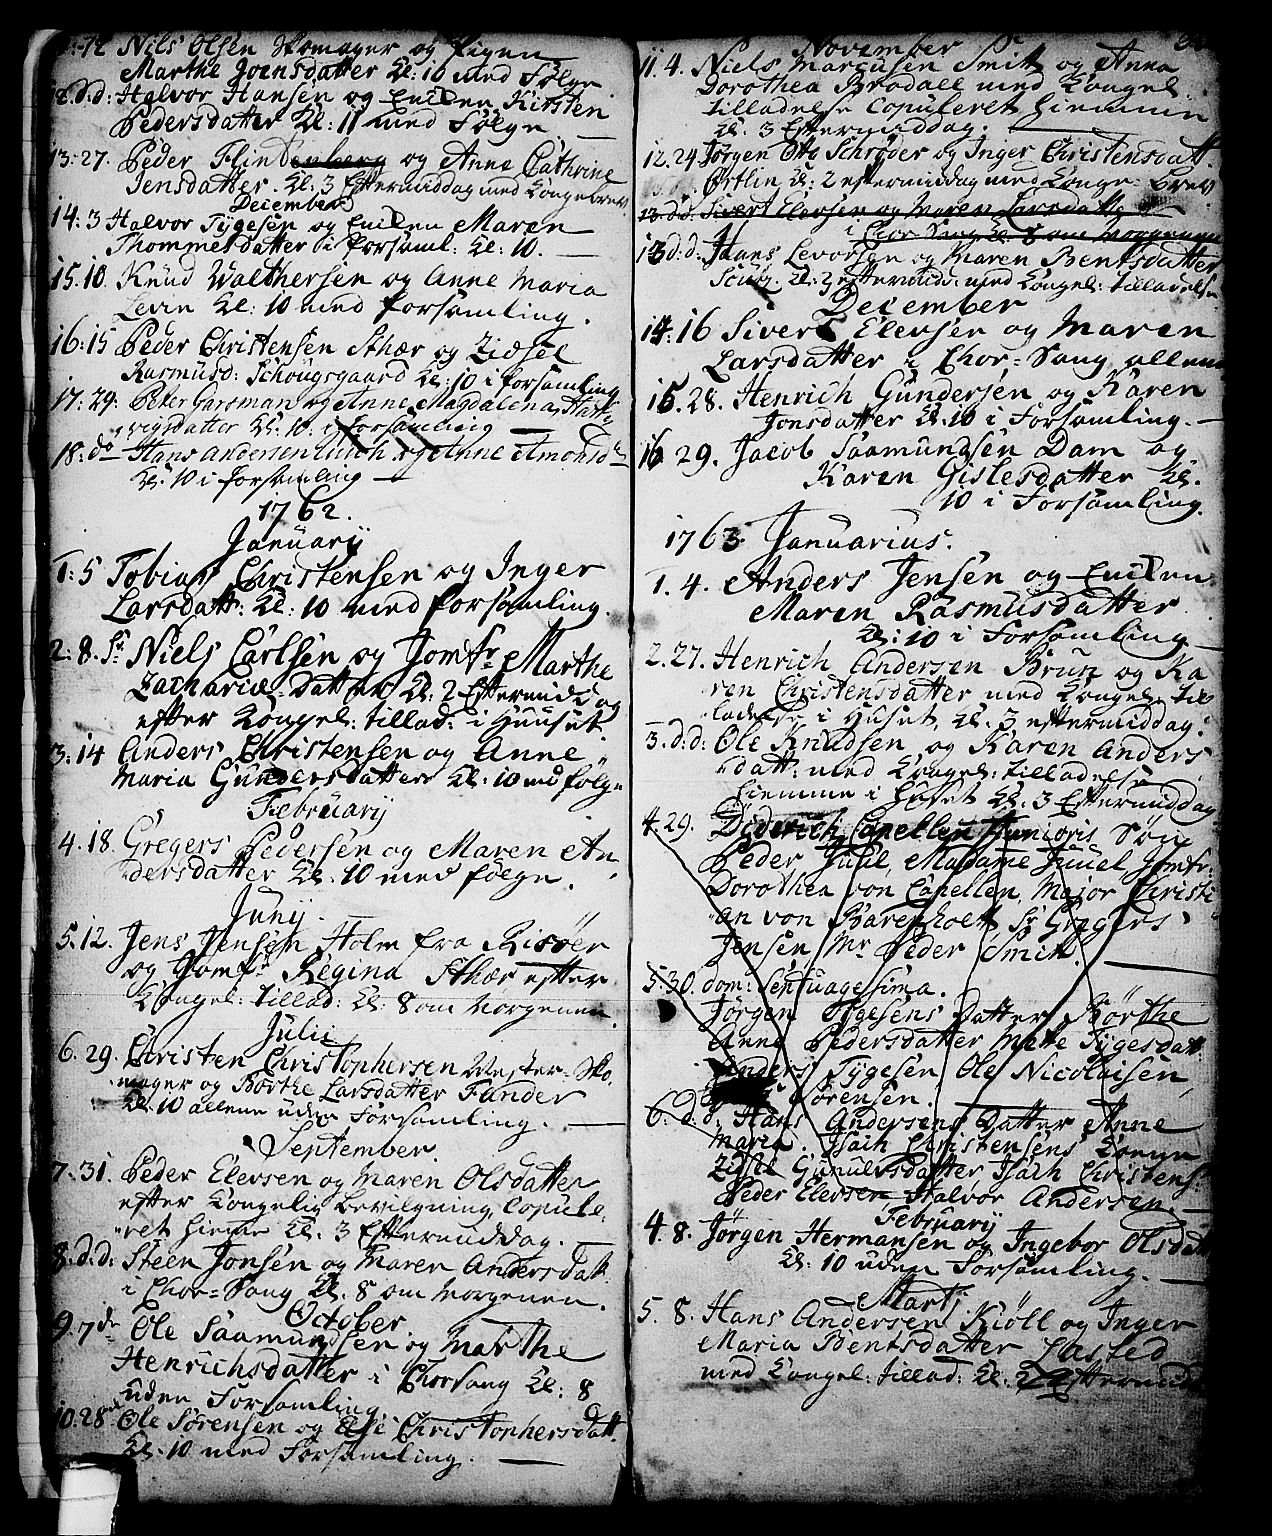 :12 Nils Olsen Skomager og Pigen
Marthe Joensdatter Kl: 10 med Følge
12.d.d: Halvor Hansen og Enken Kirsten
Pedersdatter Kl: 11 med Følge
13:27. Peder Flindenberg og Anne Cathrine
Jensdatter. Kl: 3 Eftermiddag med Kongebrev
December
14:3 Halvor Tygesen og Enken Maren
Thommesdatter i forsaml: Kl: 10.
15.10. Knud Walthersen og Anne Maria
Levin Kl: 10 med forsamling.
16:15 Peder Christensen Sthær og Zidsel
Rasmusd: Schougsgaard Kl: 10 i forsamling
17:29. Peter Garsman og Anne Magdalena Hart-
vigsdatter Kl: 10. i forsamling
18: do Hans Andersen og Anne Amonsd:
Kl: 10 i forsamling
1762.
January
1:5 Tobias Christensen og Inger
Larsdatt: Kl: 10 med forsamling.
2:8. Sr. Niels Carlsen og Jomfr Marthe
Zachariæ Datter Kl: 2 Eftermiddag
efter Kongel: tillad: i Huuset.
3:14 Anders Christensen og Anne
Maria Gundersdatter Kl: 10 md følge
February
4.18. Gregers Pedersen og Maren An-
dersdatter Kl: 10 med følge.
Juny.
5.12. Jens Jensen Holm fra Risöer
og Jomfr Regina Sthær efter
Kongel: tillad: Kl: 8 om Morgenen.
Julii
6.29. Christen Christophersen Wester Sko-
mager og Börthe Larsdatter Fander
Kl: 10 allene uden Forsamling.
September
7:31. Peder Elevsen og Maren Olsdatter
efter Kongelig Bevilgning Copule-
ret hieme Kl: 3 Eftermiddag.
8.d.d: Steen Jonsen og Maren Andersdatt
i Chor=Sang Kl: 8 om Morgenen.
October
9.7de Ole Saamundsen og Marthe
Henrichsdatter i Chorsang Kl: 8
uden Forsamling
10.28 Ole Sörensen og Else Christophersdatt.
Kl: 10 med Forsamling.
November
11.4. Niels Marcusen Smitt og Anna
Dorothea Brodall med Kongel.
tilladelse Copuleret hiemme
Kl. 3 Eftermiddag.
12.24 Jörgen Otto Schröder og Inger Christensdatt.
Örtlin Kl: 2 eftermiddag med Konge=brev
13.d.d: Sivert Elevsen og Maren Larsdatter
i Chor Sang Kl: 8 om Morgenen
13 d.d: Hans Levorsen og Maren Bentsdatter
Kl: 3 eftermidd: med Kongel: tilladelse
December
14:16 Sivert Elevsen og Maren
Larsdatter i Chor=Sang allene
15.28. Henrich Gundersen og Karen
Jonsdatter Kl. 10 i Forsamling.
16 29. Jacob Saamundsen Dam og
Karen Gislesdatter Kl.
10 i Forsamling.
1763 Januarius.
1.4. Anders Jensen og Enken
Maren Rasmusdatter
Kl: 10 i Forsamling
2.27. Henrich Andersen Bruun og Ka
ren Christensdatter med Kongel: til
ladelse i Huset, Kl. 3 eftermiddag.
3.d.d: Ole Knudsen og Karen Anders
datt: med Kongel: tilladelse
hiemme i Huset Kl. 3 Eftermiddag
4.29. Diderich Capellen Junioris Søn
Peder Juul, Madame Juuel Jomfr.
Dorothea von Capellen, Major Christi
an von Barenholt Sr Gregers
Jensen Mr Peder Smitt.
5.30. dom: Septuagesima.
Jörgen Tygesens Datter Börthe
Anne Pedersdatter Mette Tygesdatt
Anders Tygesen Ole Nicolaisen
Sörensen.
6. d.d. Hans Andersens Datter Anne
Maria. Isach Christensens Konne
Zidsel Gunulfsdatter Isach Christens:
Peder Elevsen Halvor Andersen.
February
4.8. Jörgen Hermansen og Ingebor Olsdatt
Kl: 10 uden Forsamling.
Martj.
5.8. Hans Andersen Kiöll og Inger
Maria Bentsdatter Lasted
med Kongel: tillad: Kl: 2 Eftermidd